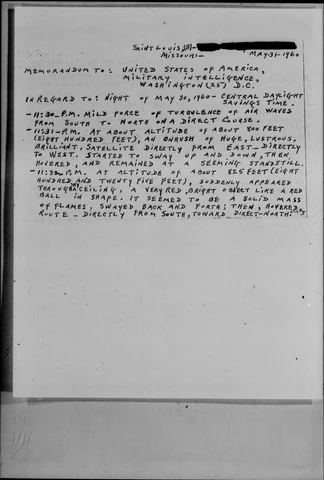 SAINT LOUIS, (8)-
MISSOURI- MAY-31-1960
MEMORANDUM TO: UNITED STATES OF AMERICA,
MILITARY INTELLIGENCE,
WASHINGTON (25) D.C.
IN REGARD TO: NIGHT OF MAY 30, 1960- CENTRAL DAYLIGHT
SAVINGS TIME.
-11:30-P.M. MILD FORCE OF TURBULENCE OF AIR WAVES
FROM SOUTH TO NORTH ON A DIRECT COURSE.
-11:31-P.M. AT ABOUT ALTITUDE OF ABOUT 800 FEET
(EIGHT HUNDRED FEET), AN ONRUSH OF HUGE, LUSTROUS,
BRILLIANT, SATELLITE DIRECTLY FROM EAST-DIRECTLY
TO WEST. STARTED TO SWAY UP AND DOWN, THEN
HOVERED, AND REMAINED AT A SEEMING STANDSTILL.
P.M. AT ALTITUDE OF ABOUT 825 FEET (EIGHT
HUNDRED AND TWENTY FIVE FEET), SUDDENLY APPEARED
THROUGH CEILING, A VERY RED, BRIGHT OBJECT LIKE A RED
BALL IN SHAPE. IT SEEMED TO BE A SOLID MASS
OF FLAMES, SWAYED BACK AND FORTH; THEN, HOVERED
ROUTE - DIRECTLY FROM SOUTH, TOWARD DIRECT-NORTH.